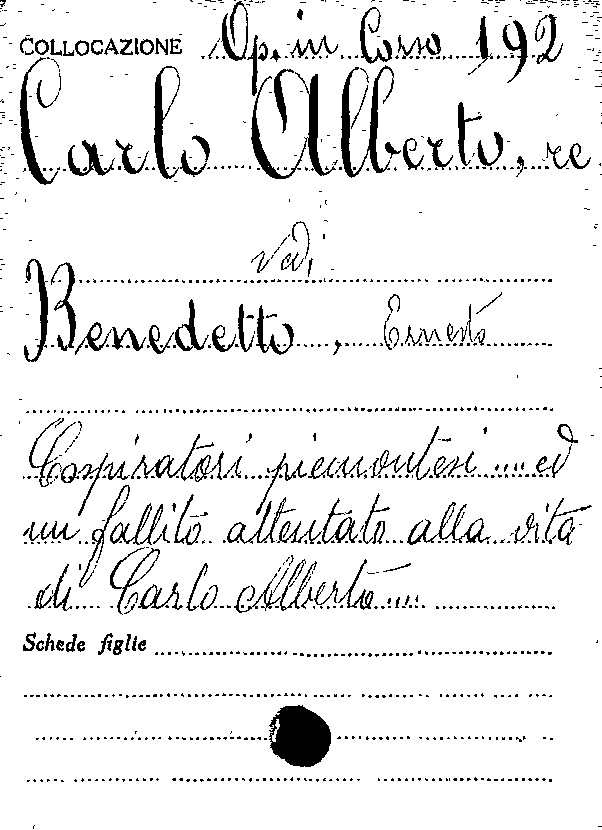 COLLOCAZIONE Op. in Corso 192
Carlo Alberto, re
Vedi
Benedetto, Ernesto
Cospiratori piemontesi .... ed
un fallito attentato alla vita
di Carlo Alberto ....
Schede figlie